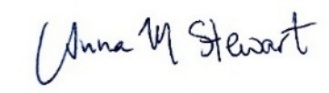 Anna M Stewart